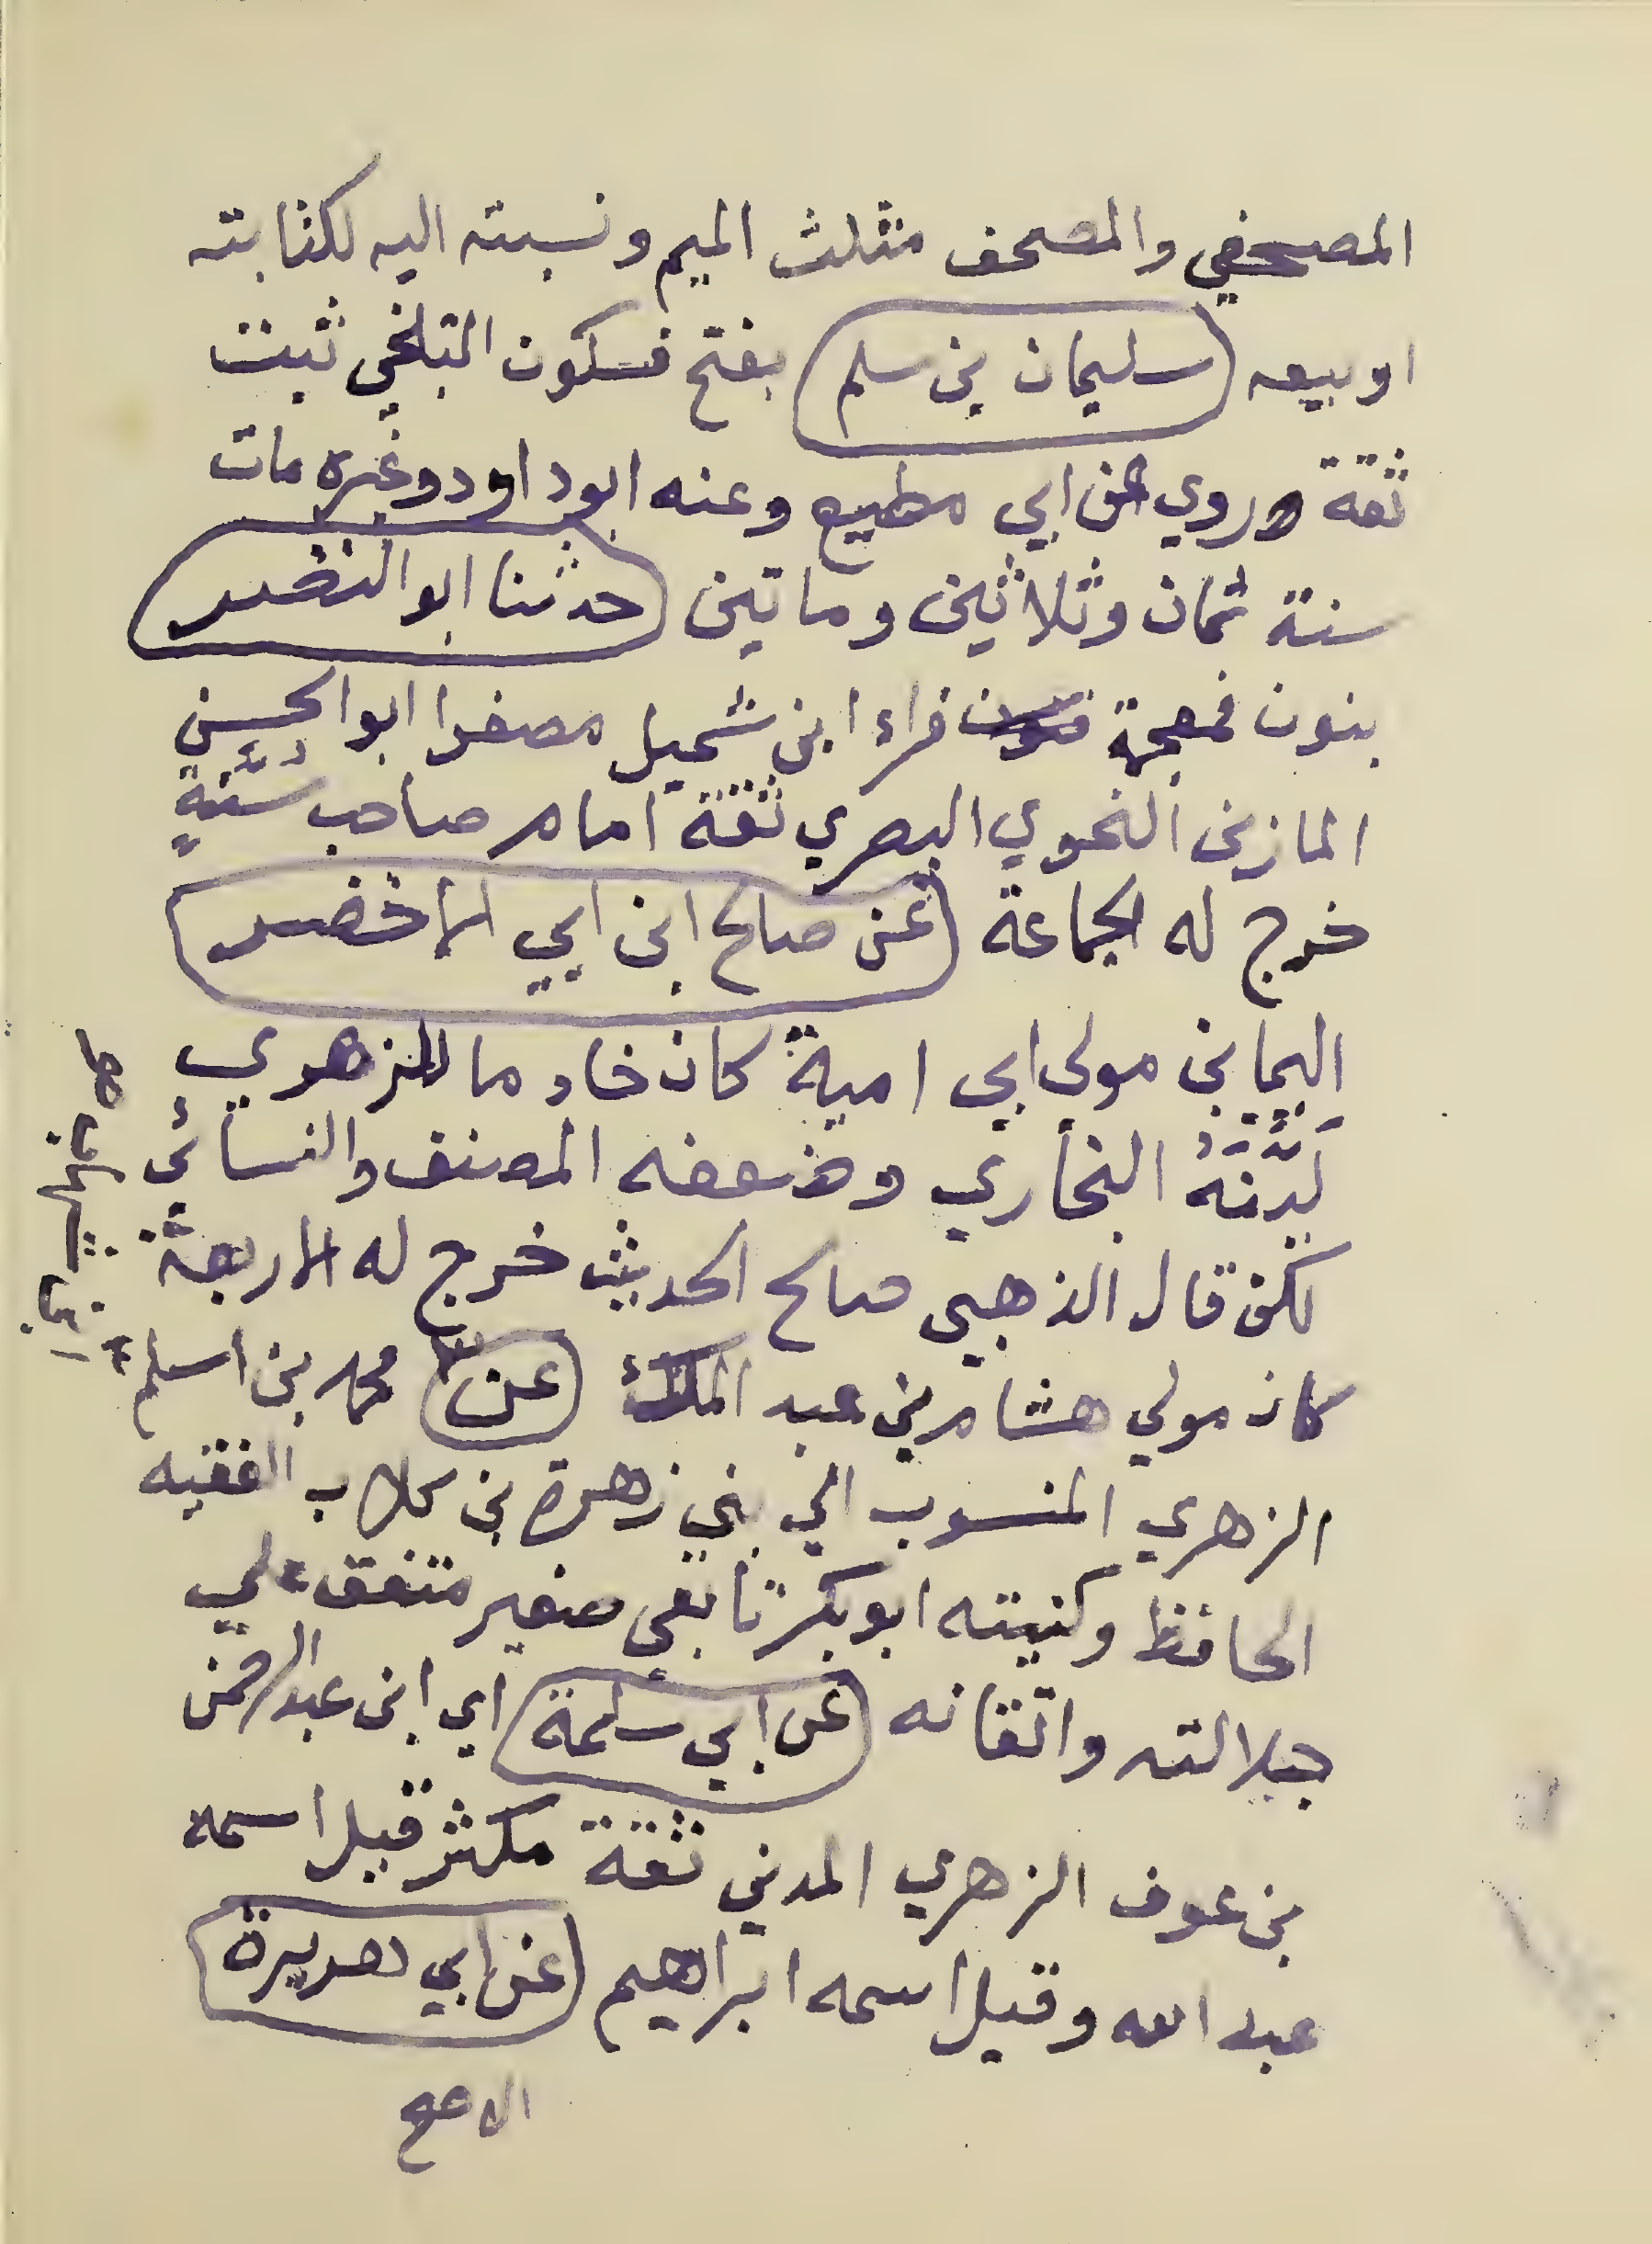 المصحفي والمصحف مثلث الميم ونسبته اليه لكتابته
او بيعه (سليمان بن سلم) بفتح فسكون البلخي ثبت
ثقة روي عن ابي مطيع وعنه ابو داود وغيره مات
سنة ثمان وثلاثين وماتين (حدثنا ابو النضر)
بنون فمعجمة فراء ابن شميل مصغرا ابو الحسن
المازني النحوي البصري ثقة امام صاحب سنة
خرج له الجماعة (عن صالح ابن ابي الاخضر)
اليماني مولي ابي امية كان خادما للزهري
لينه البخاري وضعفه المصنف والنسائي
لكن قال الذهبي صالح الحديث خرج له الاربعة
كان مولي هشام بن عبد الملك (عن) محمد بن اسلم
الزهري المنسوب الي بني زهرة بن كلاب الفقيه
الحافظ وكنيته ابو بكر تابعي صغير متفق علي
جلالته واتقانه (عن ابي سلمة) اي ابن عبد الرحمن
بن عوف الزهري المدني ثقة مكثر قيل اسمه
عبد الله وقيل اسمه ابراهيم (عن ابي هريرة)
الاصح
ابن شهاب